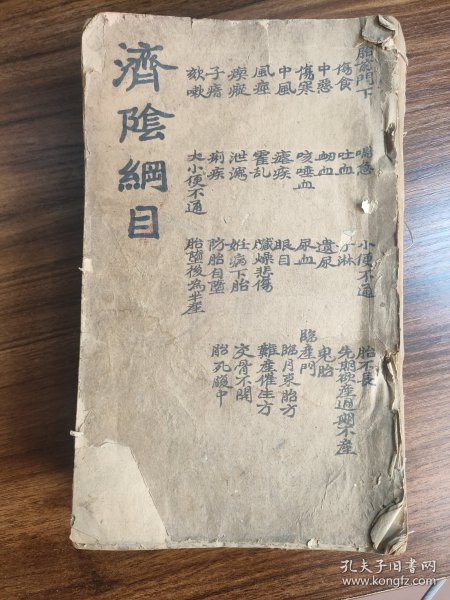 胎前門下
傷食
中惡
傷寒
中風
風痙
瘈瘲
子瘖
欬嗽
喘急
吐血
衄血
咳唾血
瘧疾
霍乱
泄瀉
痢疾
大小便不通
小便不通
子淋
遺尿
尿血
眼目
臟燥悲傷
妊病下胎
防胎自墮
胎墮後為半產
胎不長
先期欲產過期不產
鬼胎
臨產門
臨月束胎方
難產催生方
交骨不開
胎死腹中
濟陰綱目
孔夫子旧书网
www.kongfz.com